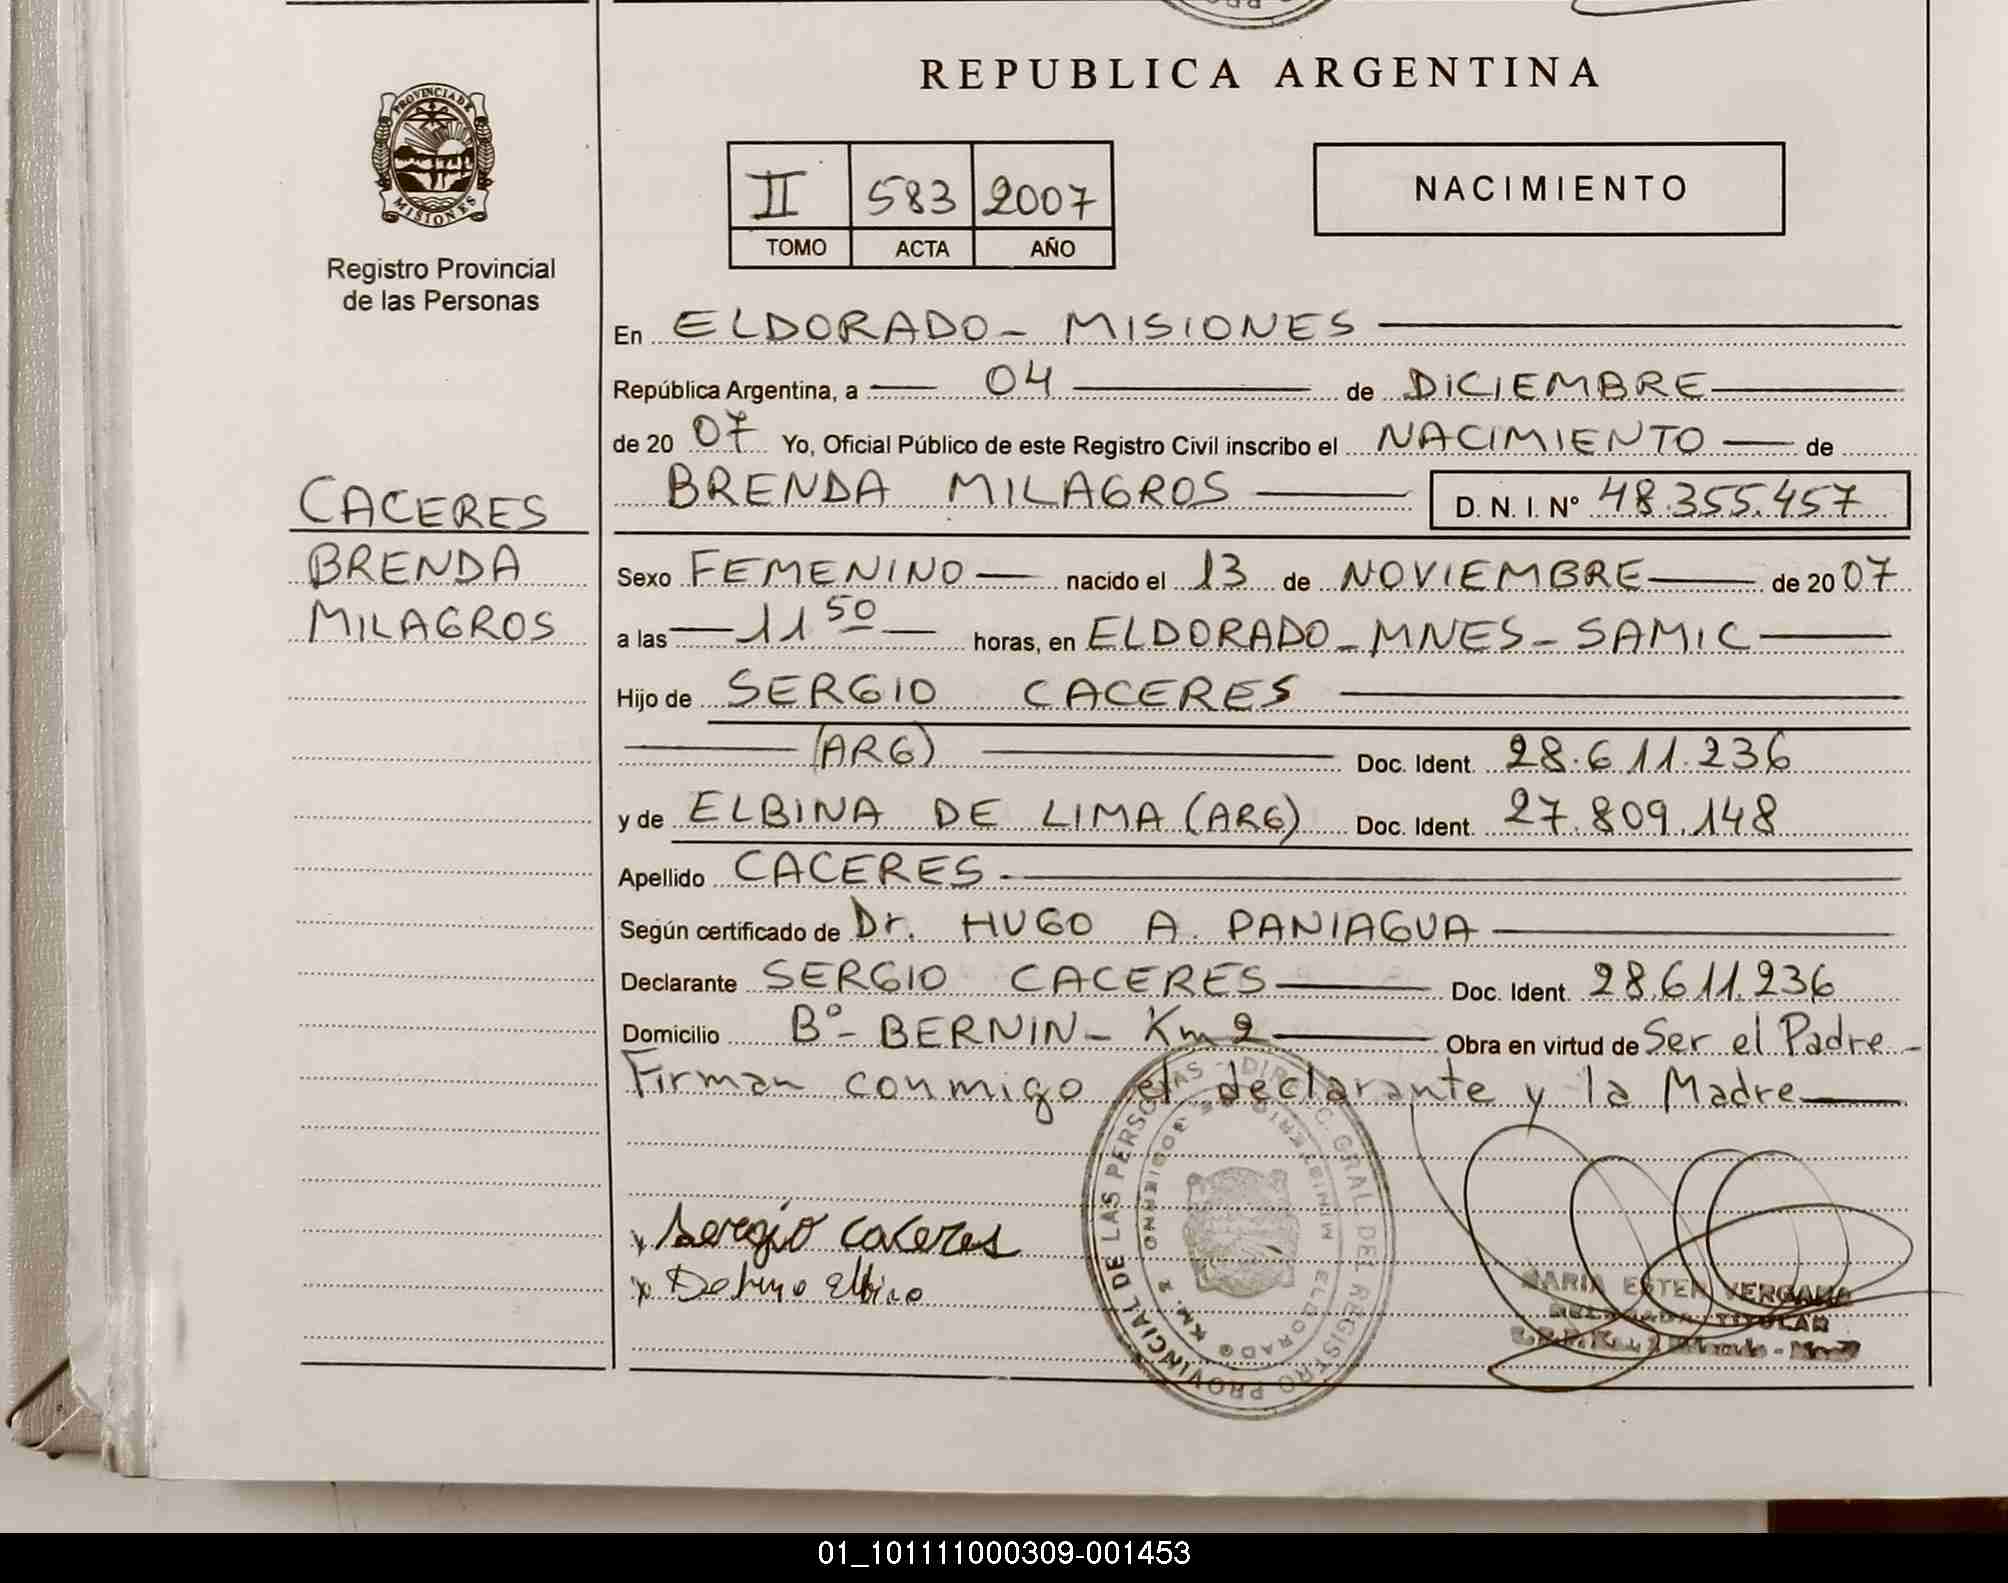 REPUBLICA ARGENTINA
PROVINCIA DE
MISIONES
Registro Provincial
de las Personas
II 583 2007
TOMO ACTA AÑO
NACIMIENTO
En ELDORADO - MISIONES
República Argentina, a 04 de DICIEMBRE
de 20 07 Yo, Oficial Público de este Registro Civil inscribo el NACIMIENTO de
BRENDA MILAGROS D. N. I. Nº 48.355.457
CACERES
BRENDA
MILAGROS
Sexo FEMENINO nacido el 13 de NOVIEMBRE de 20 07
a las 11 50 horas, en ELDORADO - MNES - SAMIC
Hijo de SERGIO CACERES
(ARG) Doc. Ident. 28.611.236
y de ELBINA DE LIMA (ARG) Doc. Ident. 27.809.148
Apellido CACERES
Según certificado de Dr. HUGO A. PANIAGUA
Declarante SERGIO CACERES Doc. Ident. 28.611.236
Domicilio Bº - BERNIN - Km 2 Obra en virtud de Ser el Padre -
Firman conmigo el declarante y la Madre
Sergio Caceres
Elbina
DIRECC. GRAL DEL REGISTRO PROVINCIAL DE LAS PERSONAS
MINISTERIO DE GOBIERNO
KM. 2 ELDORADO
MARIA ESTER VERGARA
DELEGADA TITULAR
01_101111000309-001453